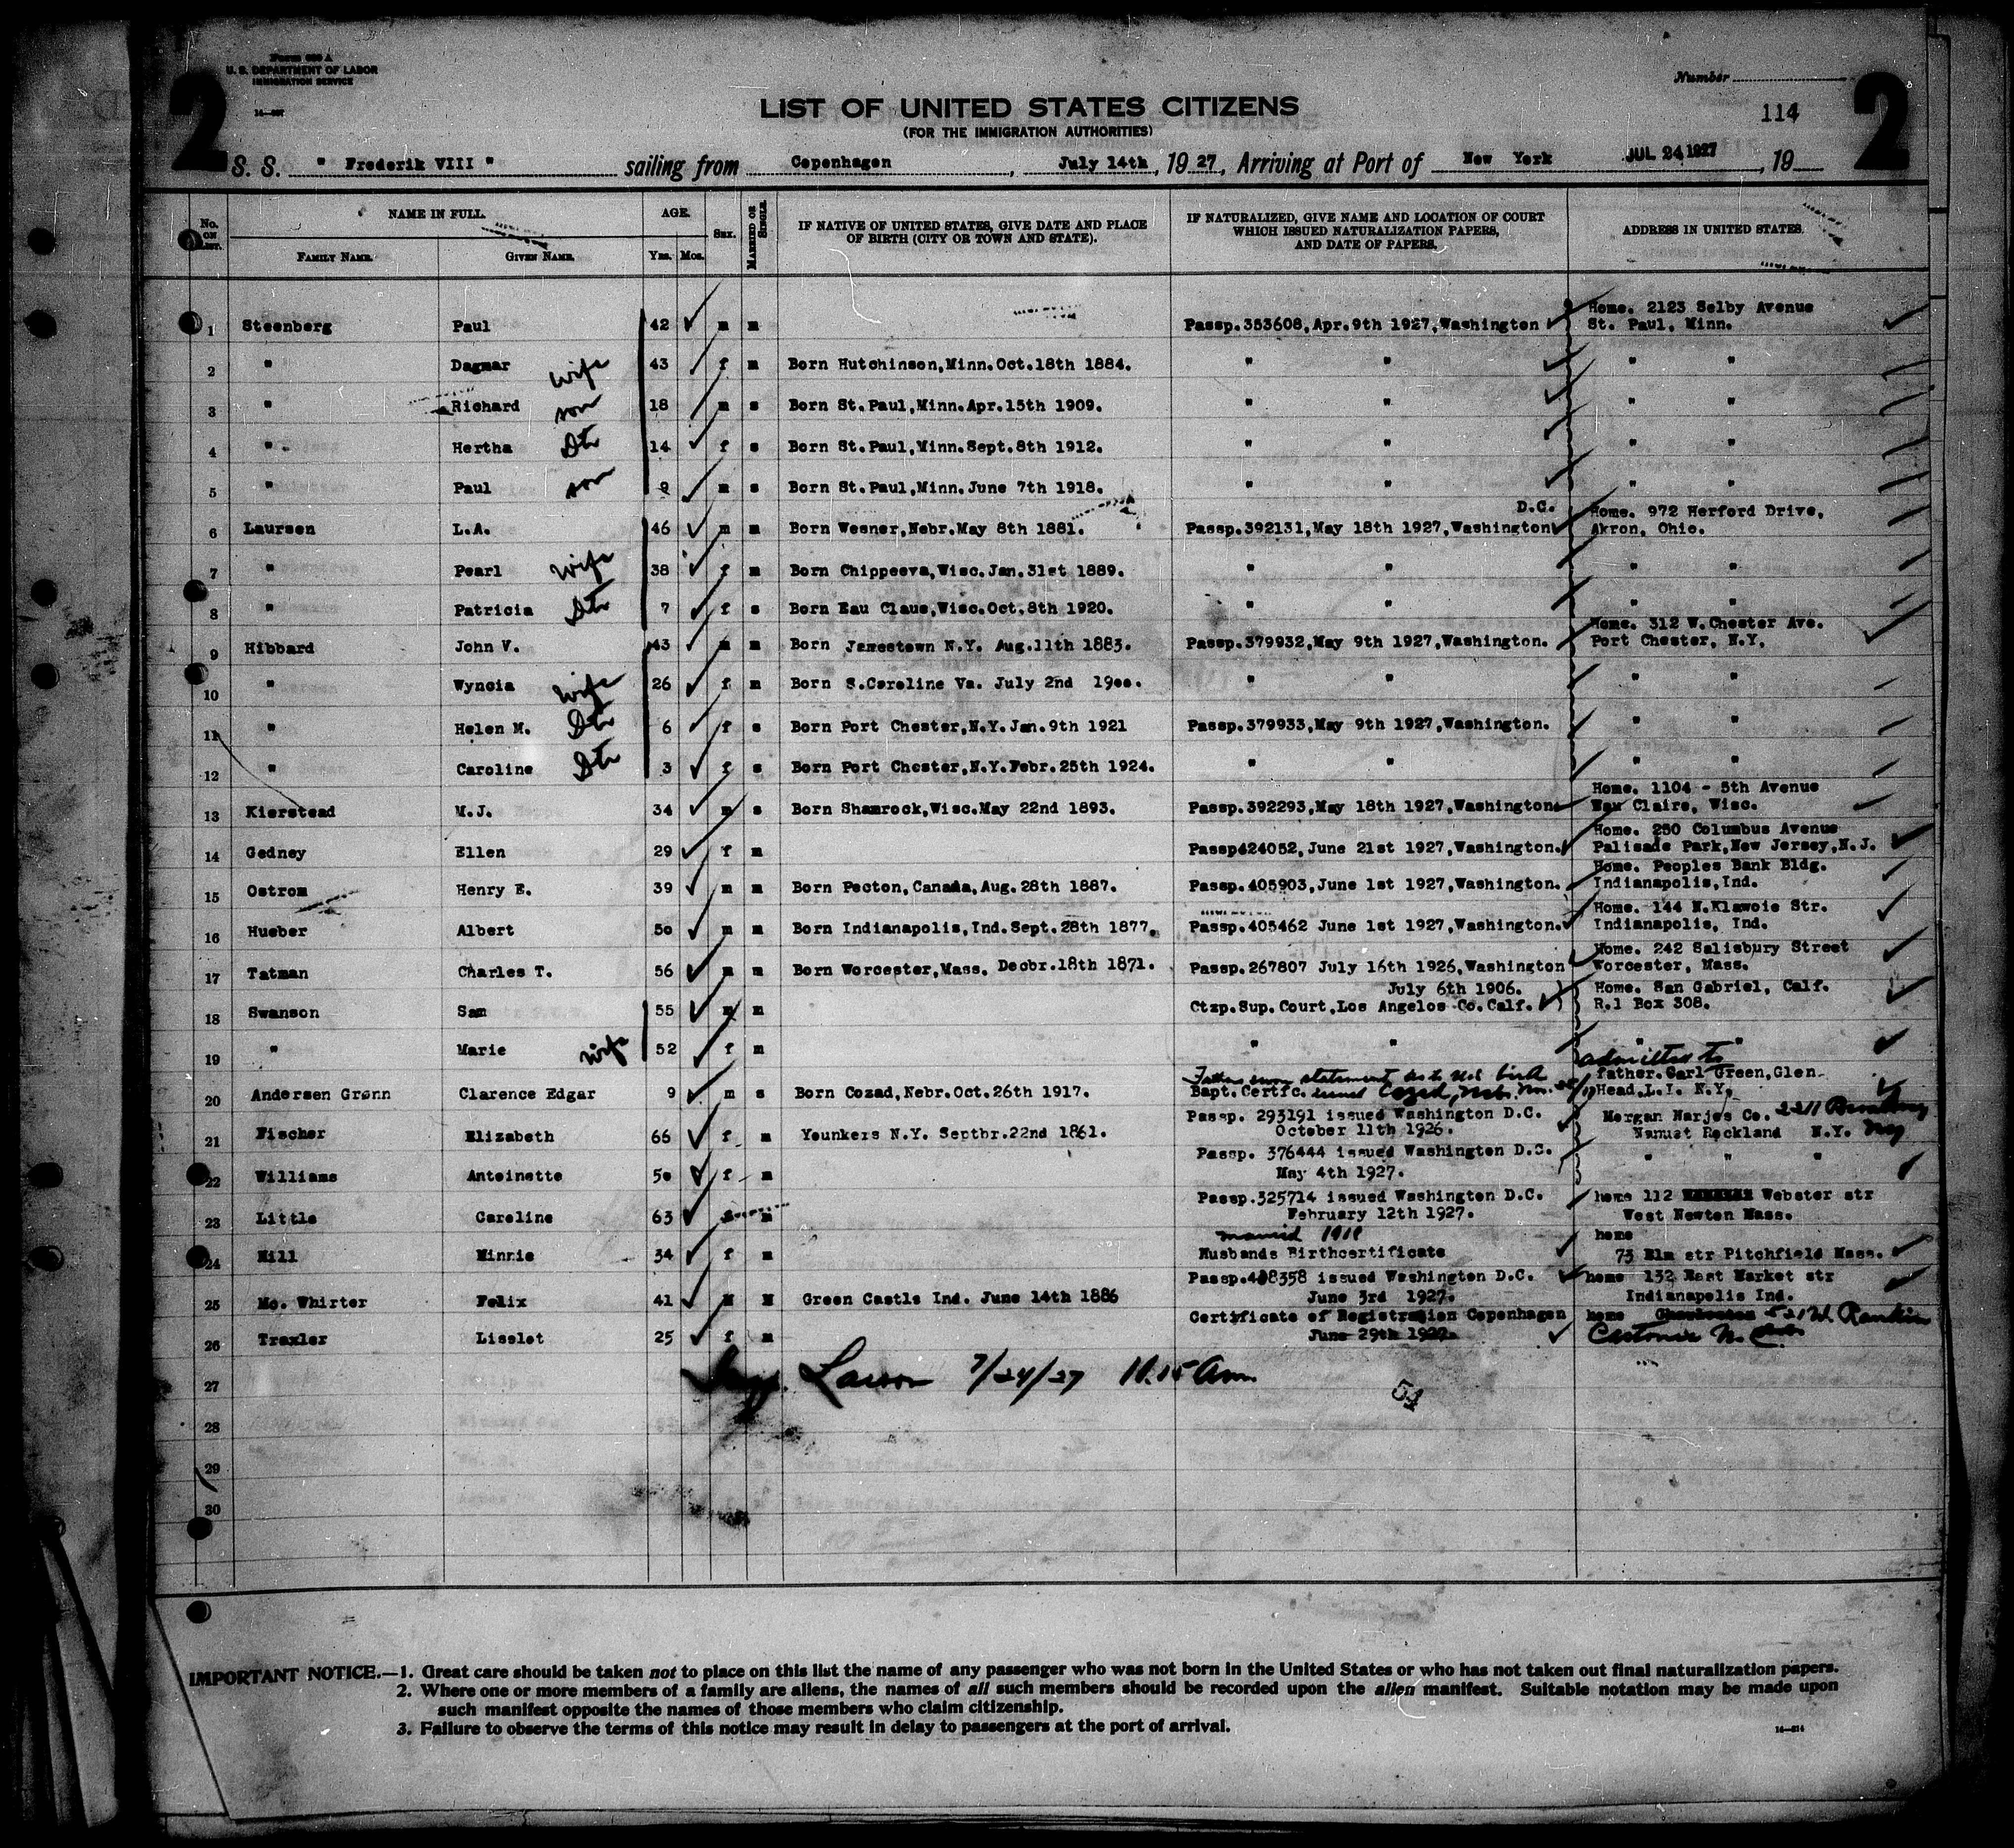 Form 630 A
U. S. DEPARTMENT OF LABOR
IMMIGRATION SERVICE
2
2
Number
114
LIST OF UNITED STATES CITIZENS
(FOR THE IMMIGRATION AUTHORITIES)
S. S. " Frederik VIII " sailing from Copenhagen, July 14th, 1927, Arriving at Port of New York JUL 24 1927, 19
No. ON LIST. NAME IN FULL. AGE. SEX. MARRIED OR SINGLE. IF NATIVE OF UNITED STATES, GIVE DATE AND PLACE OF BIRTH (CITY OR TOWN AND STATE). IF NATURALIZED, GIVE NAME AND LOCATION OF COURT WHICH ISSUED NATURALIZATION PAPERS, AND DATE OF PAPERS. ADDRESS IN UNITED STATES.
FAMILY NAME. GIVEN NAME. Yrs. Mos.
Home. 2123 Selby Avenue
1 Steenberg Paul 42 m m Passp.353608, Apr.9th 1927, Washington St. Paul, Minn.
2 " Dagmar wife 43 f m Born Hutchinson,Minn.Oct.18th 1884. " " " "
3 " Richard son 18 m s Born St.Paul,Minn.Apr.15th 1909. " " " "
4 " Hertha Dtr 14 f s Born St.Paul,Minn.Sept.8th 1912. " " " "
5 " Paul son 9 m s Born St.Paul,Minn.June 7th 1918. " " " "
D.C. Home. 972 Herford Drive,
6 Laursen L.A. 46 m m Born Wesner,Nebr.May 8th 1881. Passp.392131,May 18th 1927,Washington Akron, Ohio.
7 " Pearl wife 38 f m Born Chippeeva,Wisc.Jan.31st 1889. " " " "
8 " Patricia Dtr 7 f s Born Eau Claue,Wisc.Oct.8th 1920. " " " "
Home. 312 W.Chester Ave.
9 Hibbard John V. 43 m m Born Jamestown N.Y. Aug.11th 1883. Passp.379932,May 9th 1927,Washington. Port Chester, N.Y.
10 " Wyncia wife 26 f m Born S.Caroline Va. July 2nd 19oo. " " " "
11 " Helen M. Dtr 6 f s Born Port Chester,N.Y.Jan.9th 1921 Passp.379933,May 9th 1927,Washington. " "
12 " Caroline Dtr 3 f s Born Port Chester,N.Y.Febr.25th 1924. " " " "
Home. 1104 - 5th Avenue
13 Kierstead M.J. 34 m s Born Shamrock,Wisc.May 22nd 1893. Passp.392293,May 18th 1927,Washington. Eau Claire, Wisc.
Home. 250 Columbus Avenue
14 Gedney Ellen 29 f m Passp424052, June 21st 1927,Washington. Palisade Park,New Jersey,N.J.
Home. Peoples Bank Bldg.
15 Ostrom Henry E. 39 m m Born Pecton, Canada, Aug.28th 1887. Passp.405903,June 1st 1927,Washington. Indianapolis,Ind.
Home. 144 N.Klawoie Str.
16 Hueber Albert 5o m m Born Indianapolis,Ind.Sept.28th 1877. Passp.405462 June 1st 1927,Washington. Indianapolis, Ind.
Home. 242 Salisbury Street
17 Tatman Charles T. 56 m m Born Worcester,Mass. Decbr.18th 1871. Passp.267807 July 16th 1926,Washington Worcester, Mass.
July 6th 1906. Home. San Gabriel, Calf.
18 Swanson Sam 55 m m Ctzp.Sup.Court,Los Angelos Co.Calf. R.1 Box 308.
19 " Marie wife 52 f m " " " "
admitted to
Fathers own statement as to US birth father.Carl Green,Glen
20 Andersen Grønn Clarence Edgar 9 m s Born Cozad,Nebr.Oct.26th 1917. Bapt.Certfc. issued Cozad, Neb. Head.L.I. N.Y.
Passp. 293191 issued Washington D.C. Morgan Harjes Co.
21 Fischer Elizabeth 66 f m Younkers N.Y. Septbr.22nd 1861. October 11th 1926. Nanuet Rockland N.Y.
Passp. 376444 issued Washington D.C. " " "
22 Williams Antoinette 5o f m May 4th 1927.
Passp.325714 issued Washington D.C. home 112 Webster str
23 Little Caroline 63 m February 12th 1927. West Newton Mass.
married 1918 home
24 Hill Minnie 34 f m Husbands Birthcertificate 73 Elm str Pitchfield Mass.
Passp.408358 issued Washington D.C. home 132 East Market str
25 Mc. Whirter Felix 41 M M Green Castle Ind. June 14th 1886 June 3rd 1927. Indianapolis Ind.
Certificate of Registration Copenhagen home 521 W. Rankin
26 Traxler Liselot 25 f m June 29th 1927.
27 Insp. Larson 7/24/27 11.15 Am
54
28
29
30
IMPORTANT NOTICE.—1. Great care should be taken not to place on this list the name of any passenger who was not born in the United States or who has not taken out final naturalization papers.
2. Where one or more members of a family are aliens, the names of all such members should be recorded upon the alien manifest. Suitable notation may be made upon
such manifest opposite the names of those members who claim citizenship.
3. Failure to observe the terms of this notice may result in delay to passengers at the port of arrival.
14—214